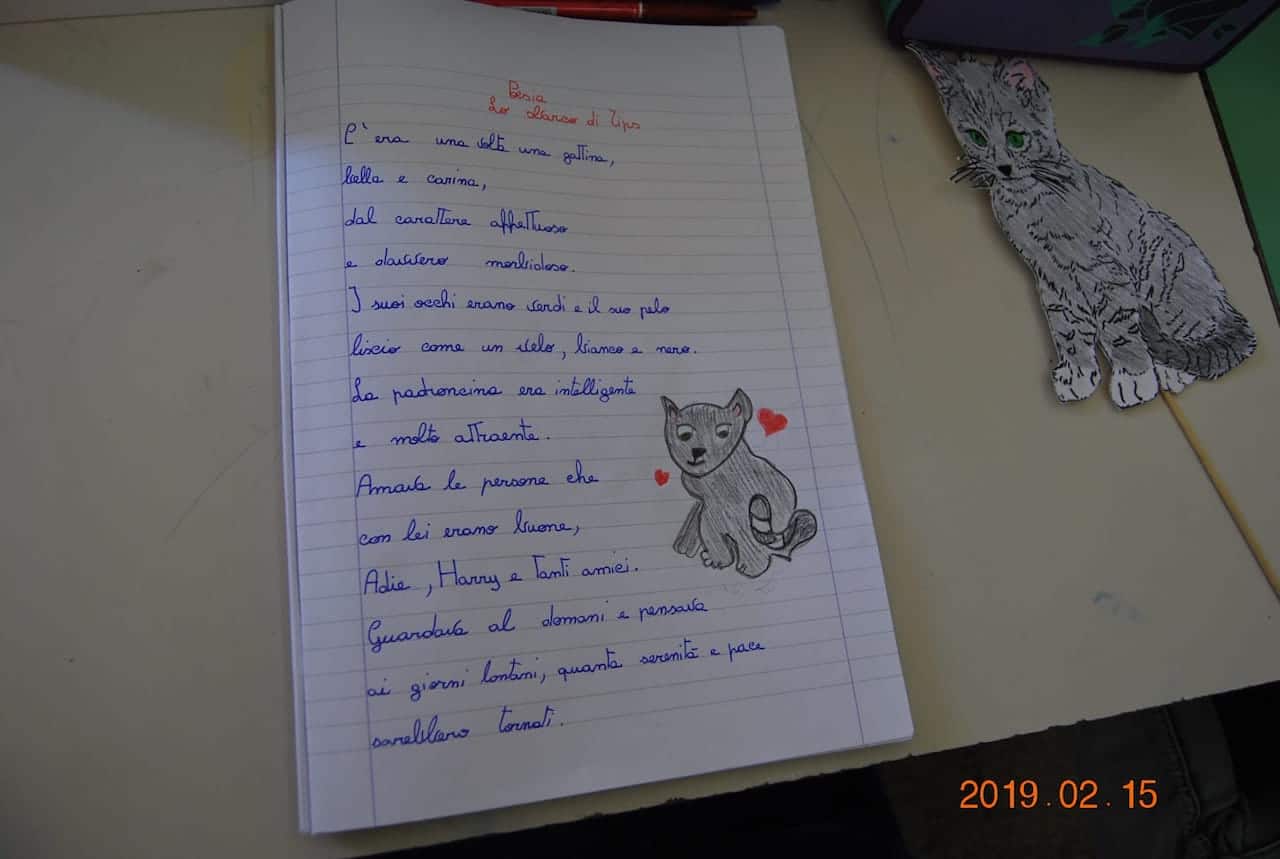 Poesia
Lo diario di Tips
C'era una volta una gattina,
bella e carina,
dal carattere affettuoso
e davvero morbidoso.
I suoi occhi erano verdi e il suo pelo
liscio come un velo, bianco e nero.
La padroncina era intelligente
e molto attraente.
Amava le persone che
con lei erano buone,
Adie, Harry e tanti amici.
Guardava al domani e pensava
ai giorni lontani, quanta serenità e pace
sarebbero tornati.
2019.02.15